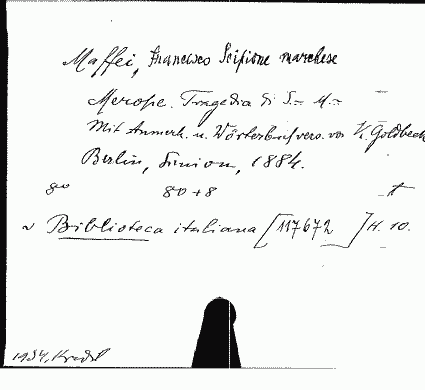 Maffei, Francesco Scipione marchese
Merope. Tragedia di S.- M.-
Mit Anmerk. u. Wörterbuch vers. von K. Goldbeck
Berlin, Simion, 1884.
80+8
Biblioteca italiana [117672] H. 10.
1934,